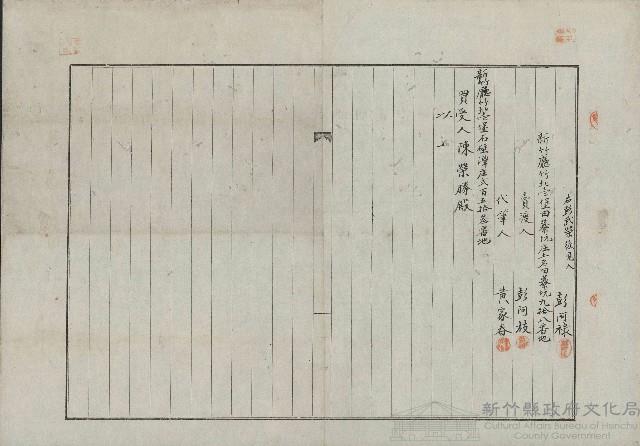 右彭氏榮後見人
彭阿祿
新竹廳竹北二堡田藔坑庄土名田藔坑九拾八番地
賣渡人 彭阿枝
代筆人 黃家春
新竹廳竹北二堡石磊潭庄貳百五拾叁番地
買受人 陳榮勝殿
以上
新竹縣政府文化局
Cultural Affairs Bureau of Hsinchu
County Government